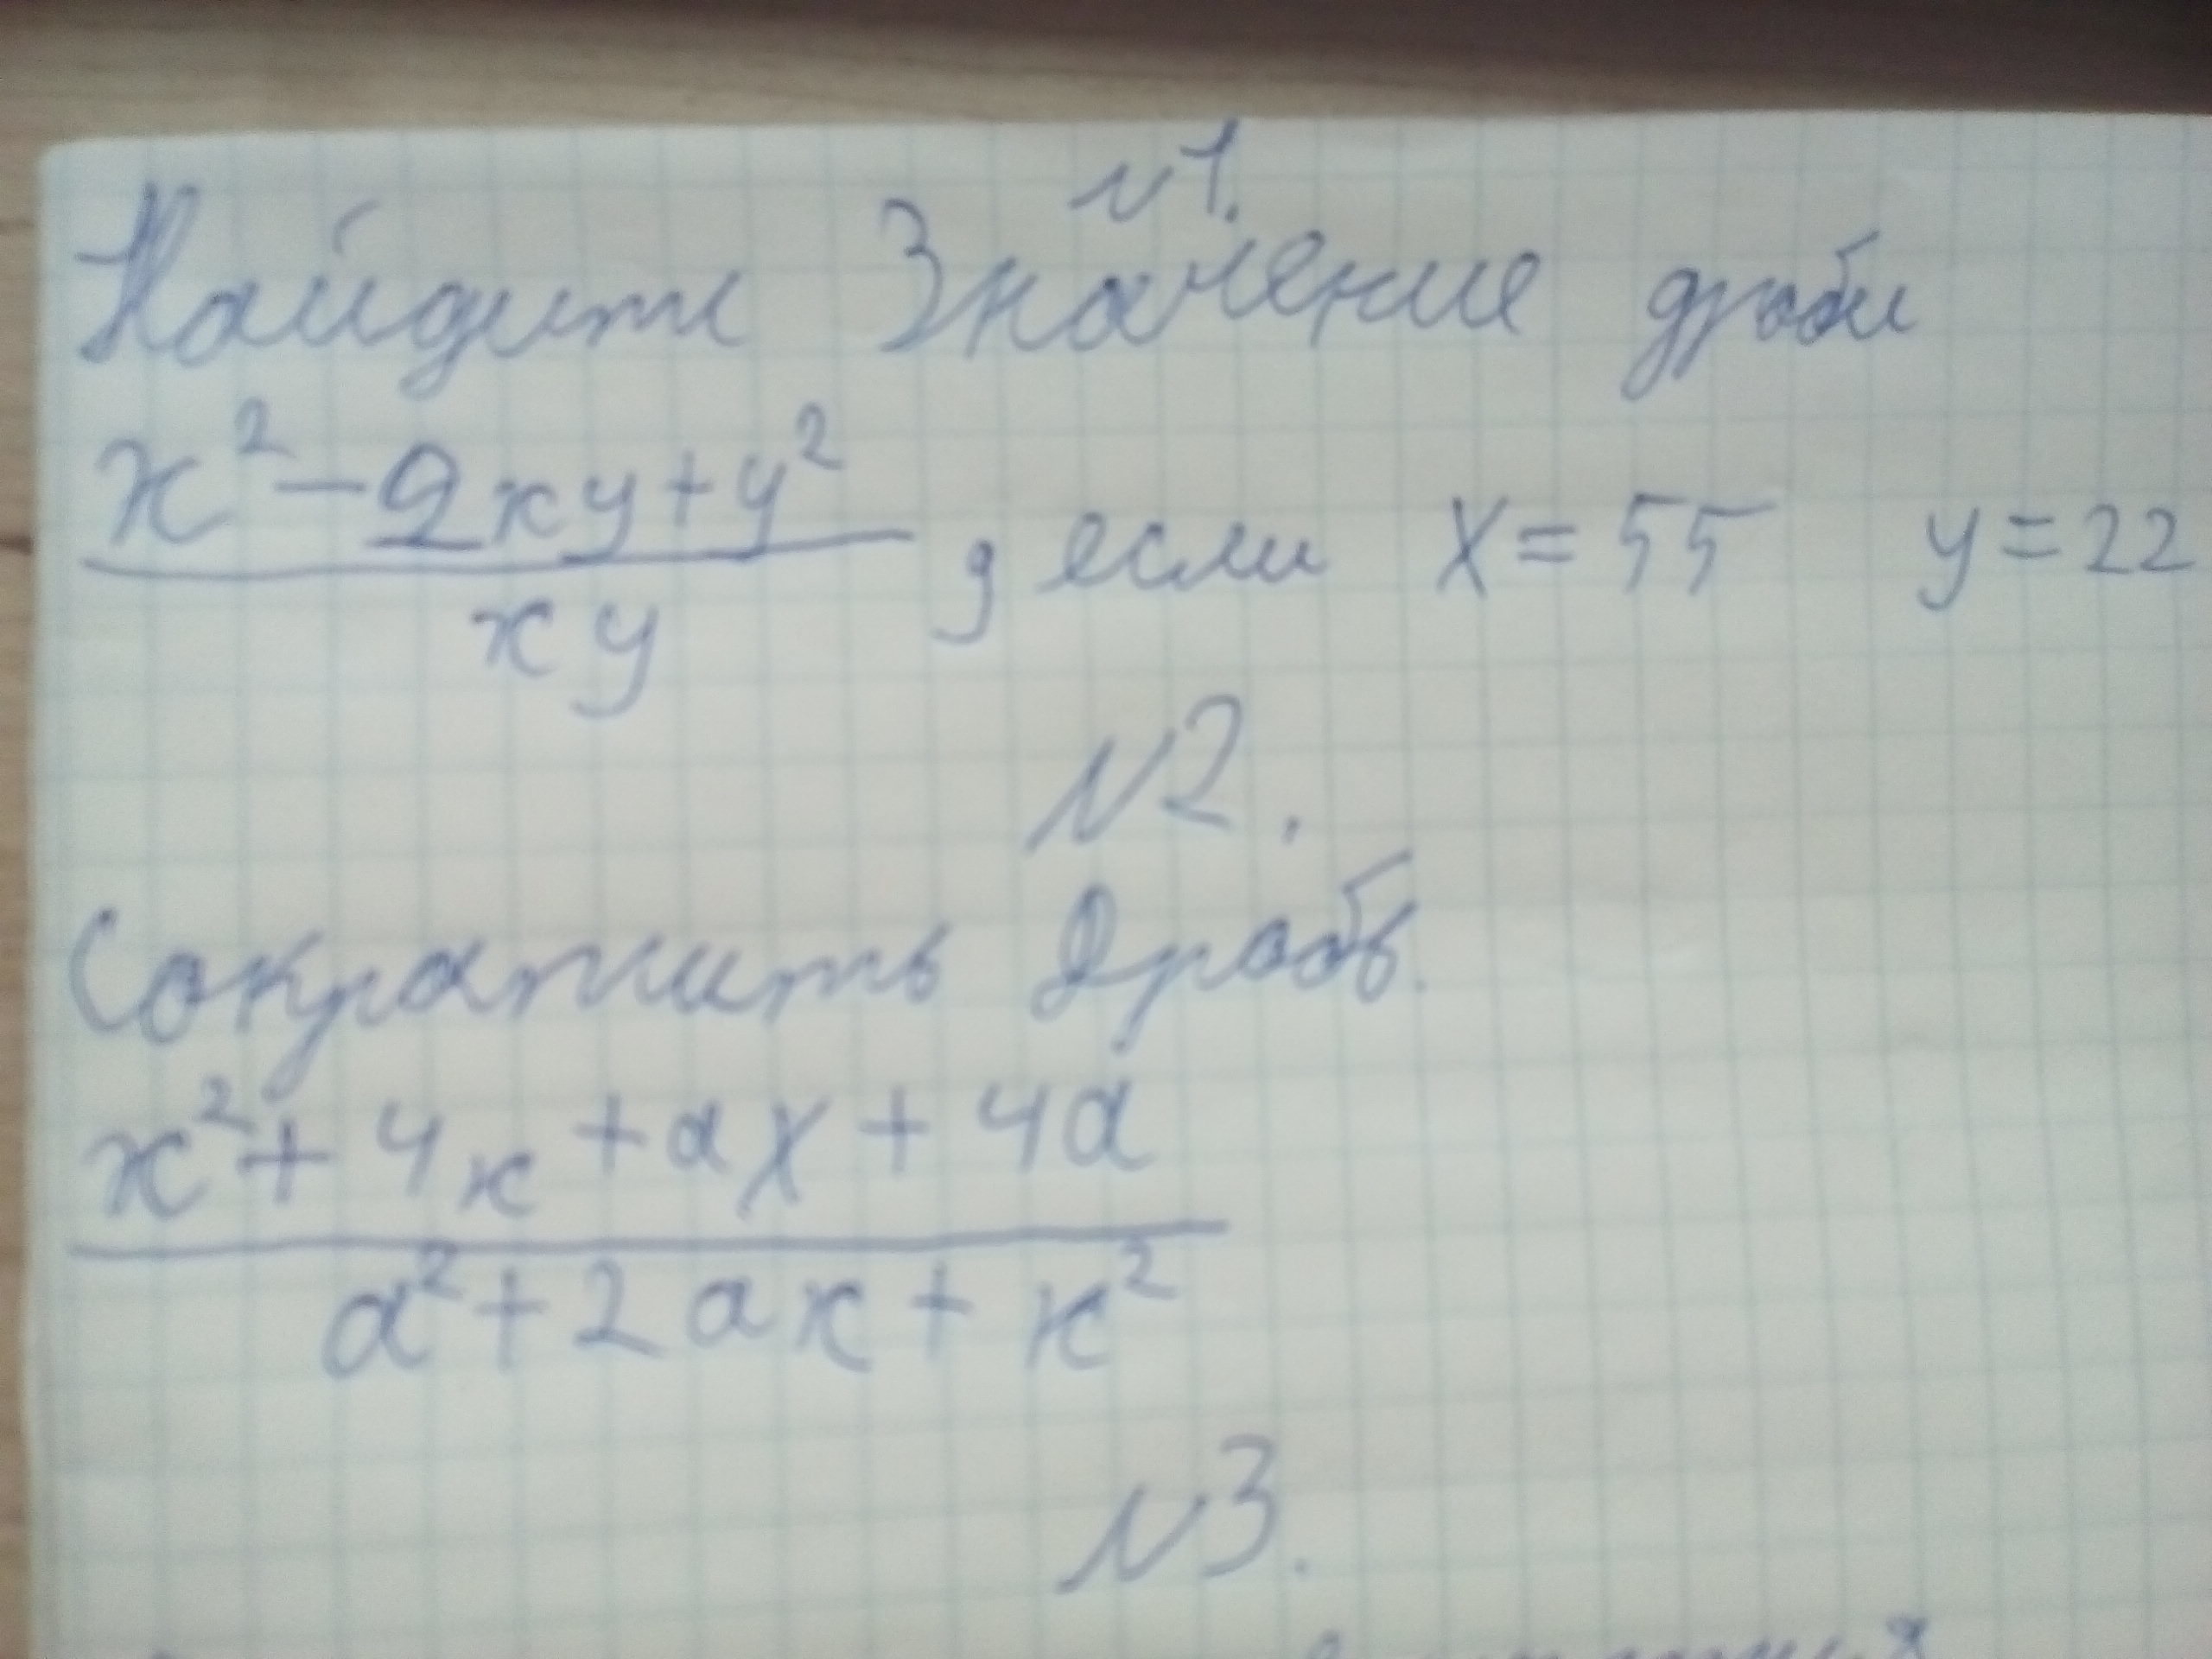 №1.
Найдите Значение дроби
x² - 2xy + y²
xy
, если x = 55 y = 22
№2.
Сократить Дробь.
x² + 4x + ax + 4a
a² + 2ax + x²
№3.